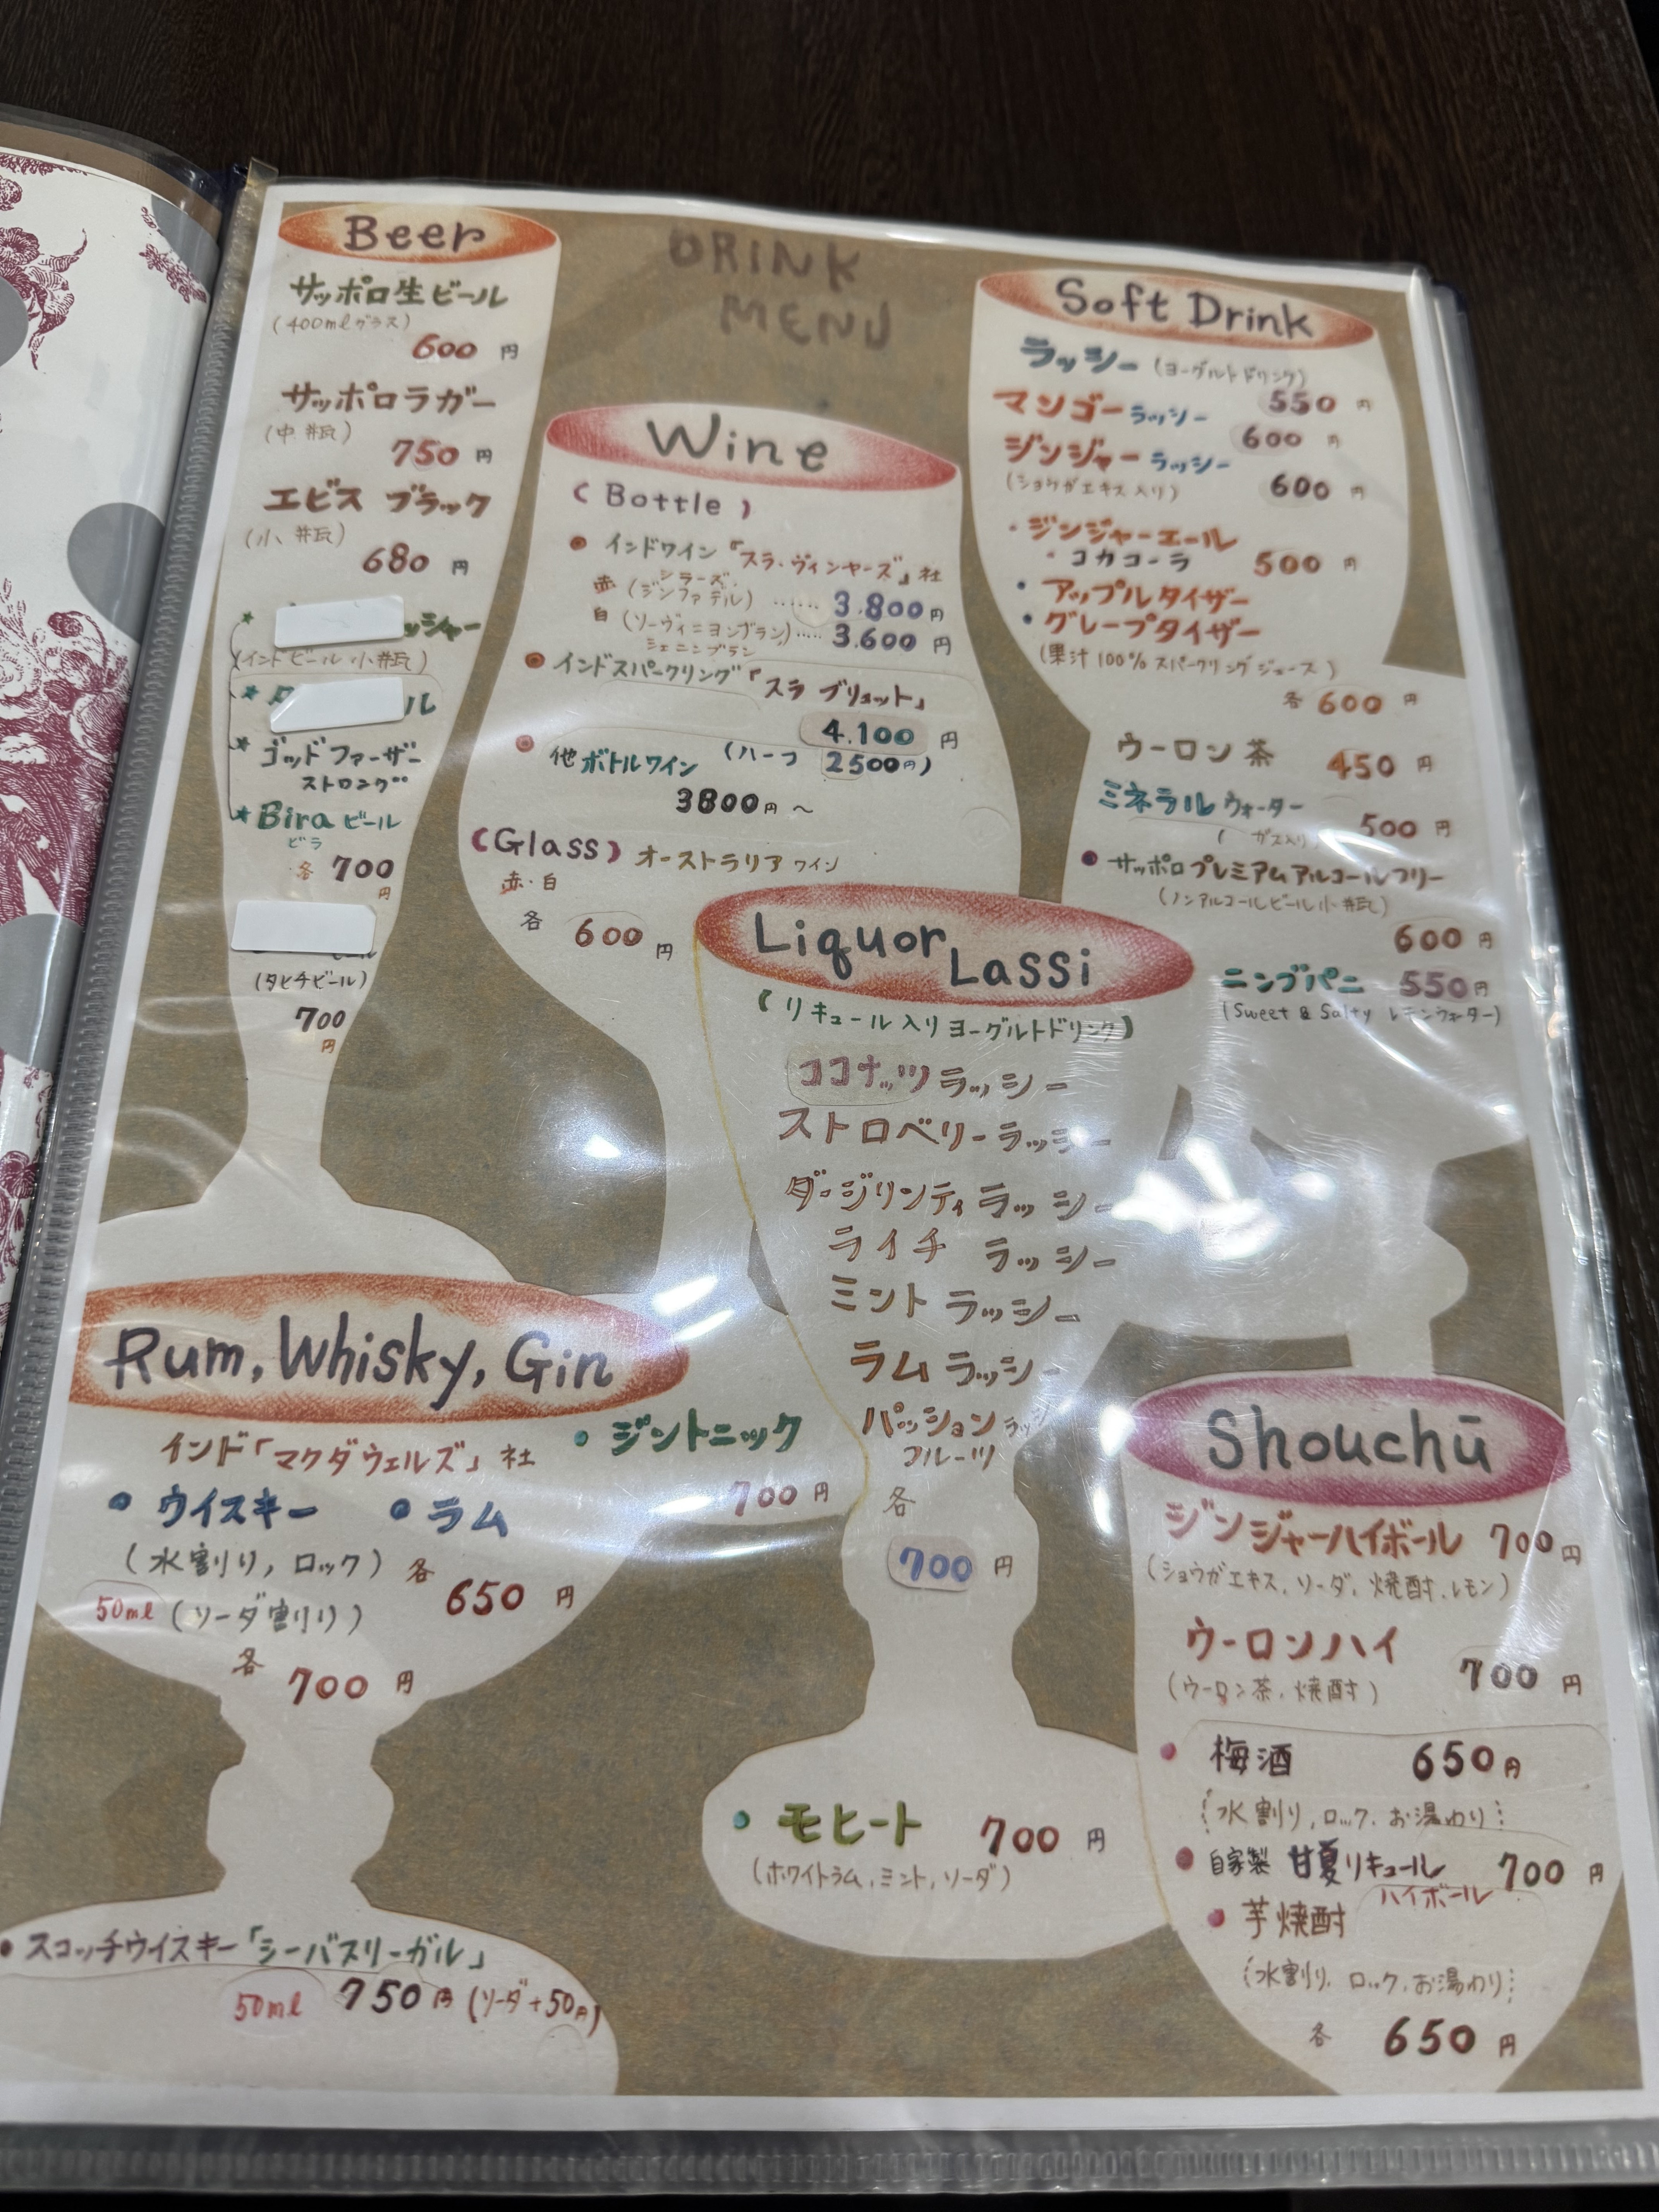 DRINK
MENU
Beer
サッポロ生ビール
(400mlグラス)
600 円
サッポロラガー
(中瓶)
750 円
エビス ブラック
(小瓶)
680 円
ッシャー
(インドビール 小瓶)
ル
ゴッドファーザー
ストロング
Bira ビール
ビラ
各 700
円
(タヒチビール)
700
円
Wine
(Bottle)
インドワイン「スラ・ヴィンヤーズ」社
シラーズ、
赤 (ジンファデル) …… 3.800円
白 (ソーヴィニヨンブラン)…… 3.600 円
シェニンブラン
インドスパークリング「スラ ブリュット」
4.100 円
他ボトルワイン (ハーフ 2500円)
3800円 ~
(Glass) オーストラリア ワイン
赤・白
各 600 円
Soft Drink
ラッシー (ヨーグルトドリンク)
550 円
マンゴー ラッシー
600 円
ジンジャー ラッシー
(ショウガエキス入り) 600 円
・ジンジャーエール
・コカコーラ 500 円
・アップルタイザー
・グレープタイザー
(果汁100%スパークリングジュース)
各 600 円
ウーロン茶 450 円
ミネラル ウォーター
( ガス入り) 500 円
サッポロプレミアムアルコールフリー
(ノンアルコールビール小瓶)
600 円
ニンブパニ 550円
(Sweet & Salty レモンウォーター)
Liquor Lassi
(リキュール入りヨーグルトドリンク)
ココナッツ ラッシー
ストロベリーラッシー
ダージリンティ ラッシー
ライチ ラッシー
ミント ラッシー
ラム ラッシー
パッション ラッシー
フルーツ
各
700 円
Rum, Whisky, Gin
インド「マクダウェルズ」社
・ウイスキー ・ラム
(水割り, ロック) 各 650 円
50ml (ソーダ割り)
各 700 円
・ジントニック
700 円
・スコッチウイスキー「シーバスリーガル」
50ml 750円 (ソーダ+50円)
・モヒート 700 円
(ホワイトラム, ミント, ソーダ)
Shouchū
ジンジャーハイボール 700円
(ショウガエキス, ソーダ, 焼酎, レモン)
ウーロンハイ
(ウーロン茶, 焼酎) 700 円
・梅酒 650円
(水割り, ロック, お湯わり)
・自家製 甘夏リキュール 700 円
ハイボール
・芋焼酎
(水割り, ロック, お湯わり)
各 650 円